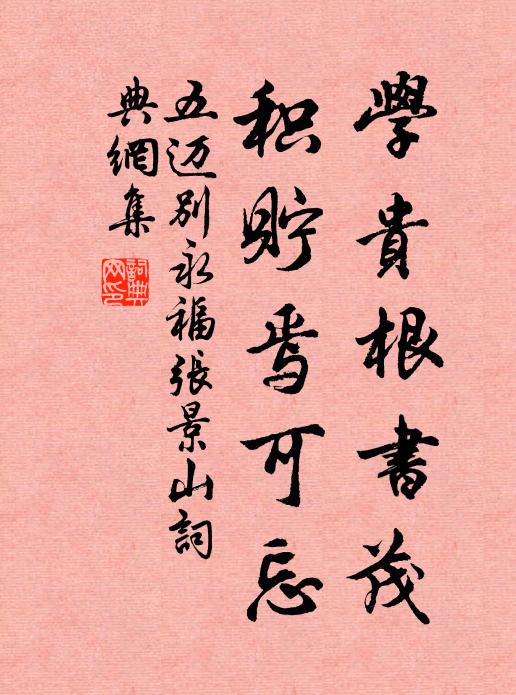 學貴根書茂
积貯焉可忘
五迈別永福張景山詞
典網集
詞典
网印